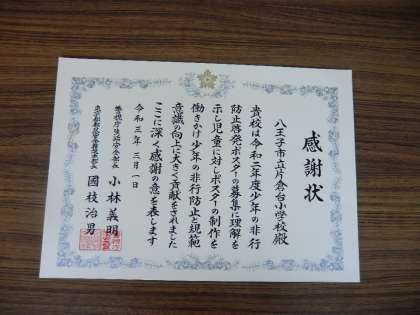 感謝状
八王子市立片倉台小学校殿
貴校は令和二年度少年の非行
防止啓発ポスターの募集に理解を
示し児童に対しポスターの制作を
働きかけ少年の非行防止と規範
意識の向上に大きく貢献をされました
ここに深く感謝の意を表します
令和三年三月一日
警視庁生活安全部長 小林義明
國枝治男